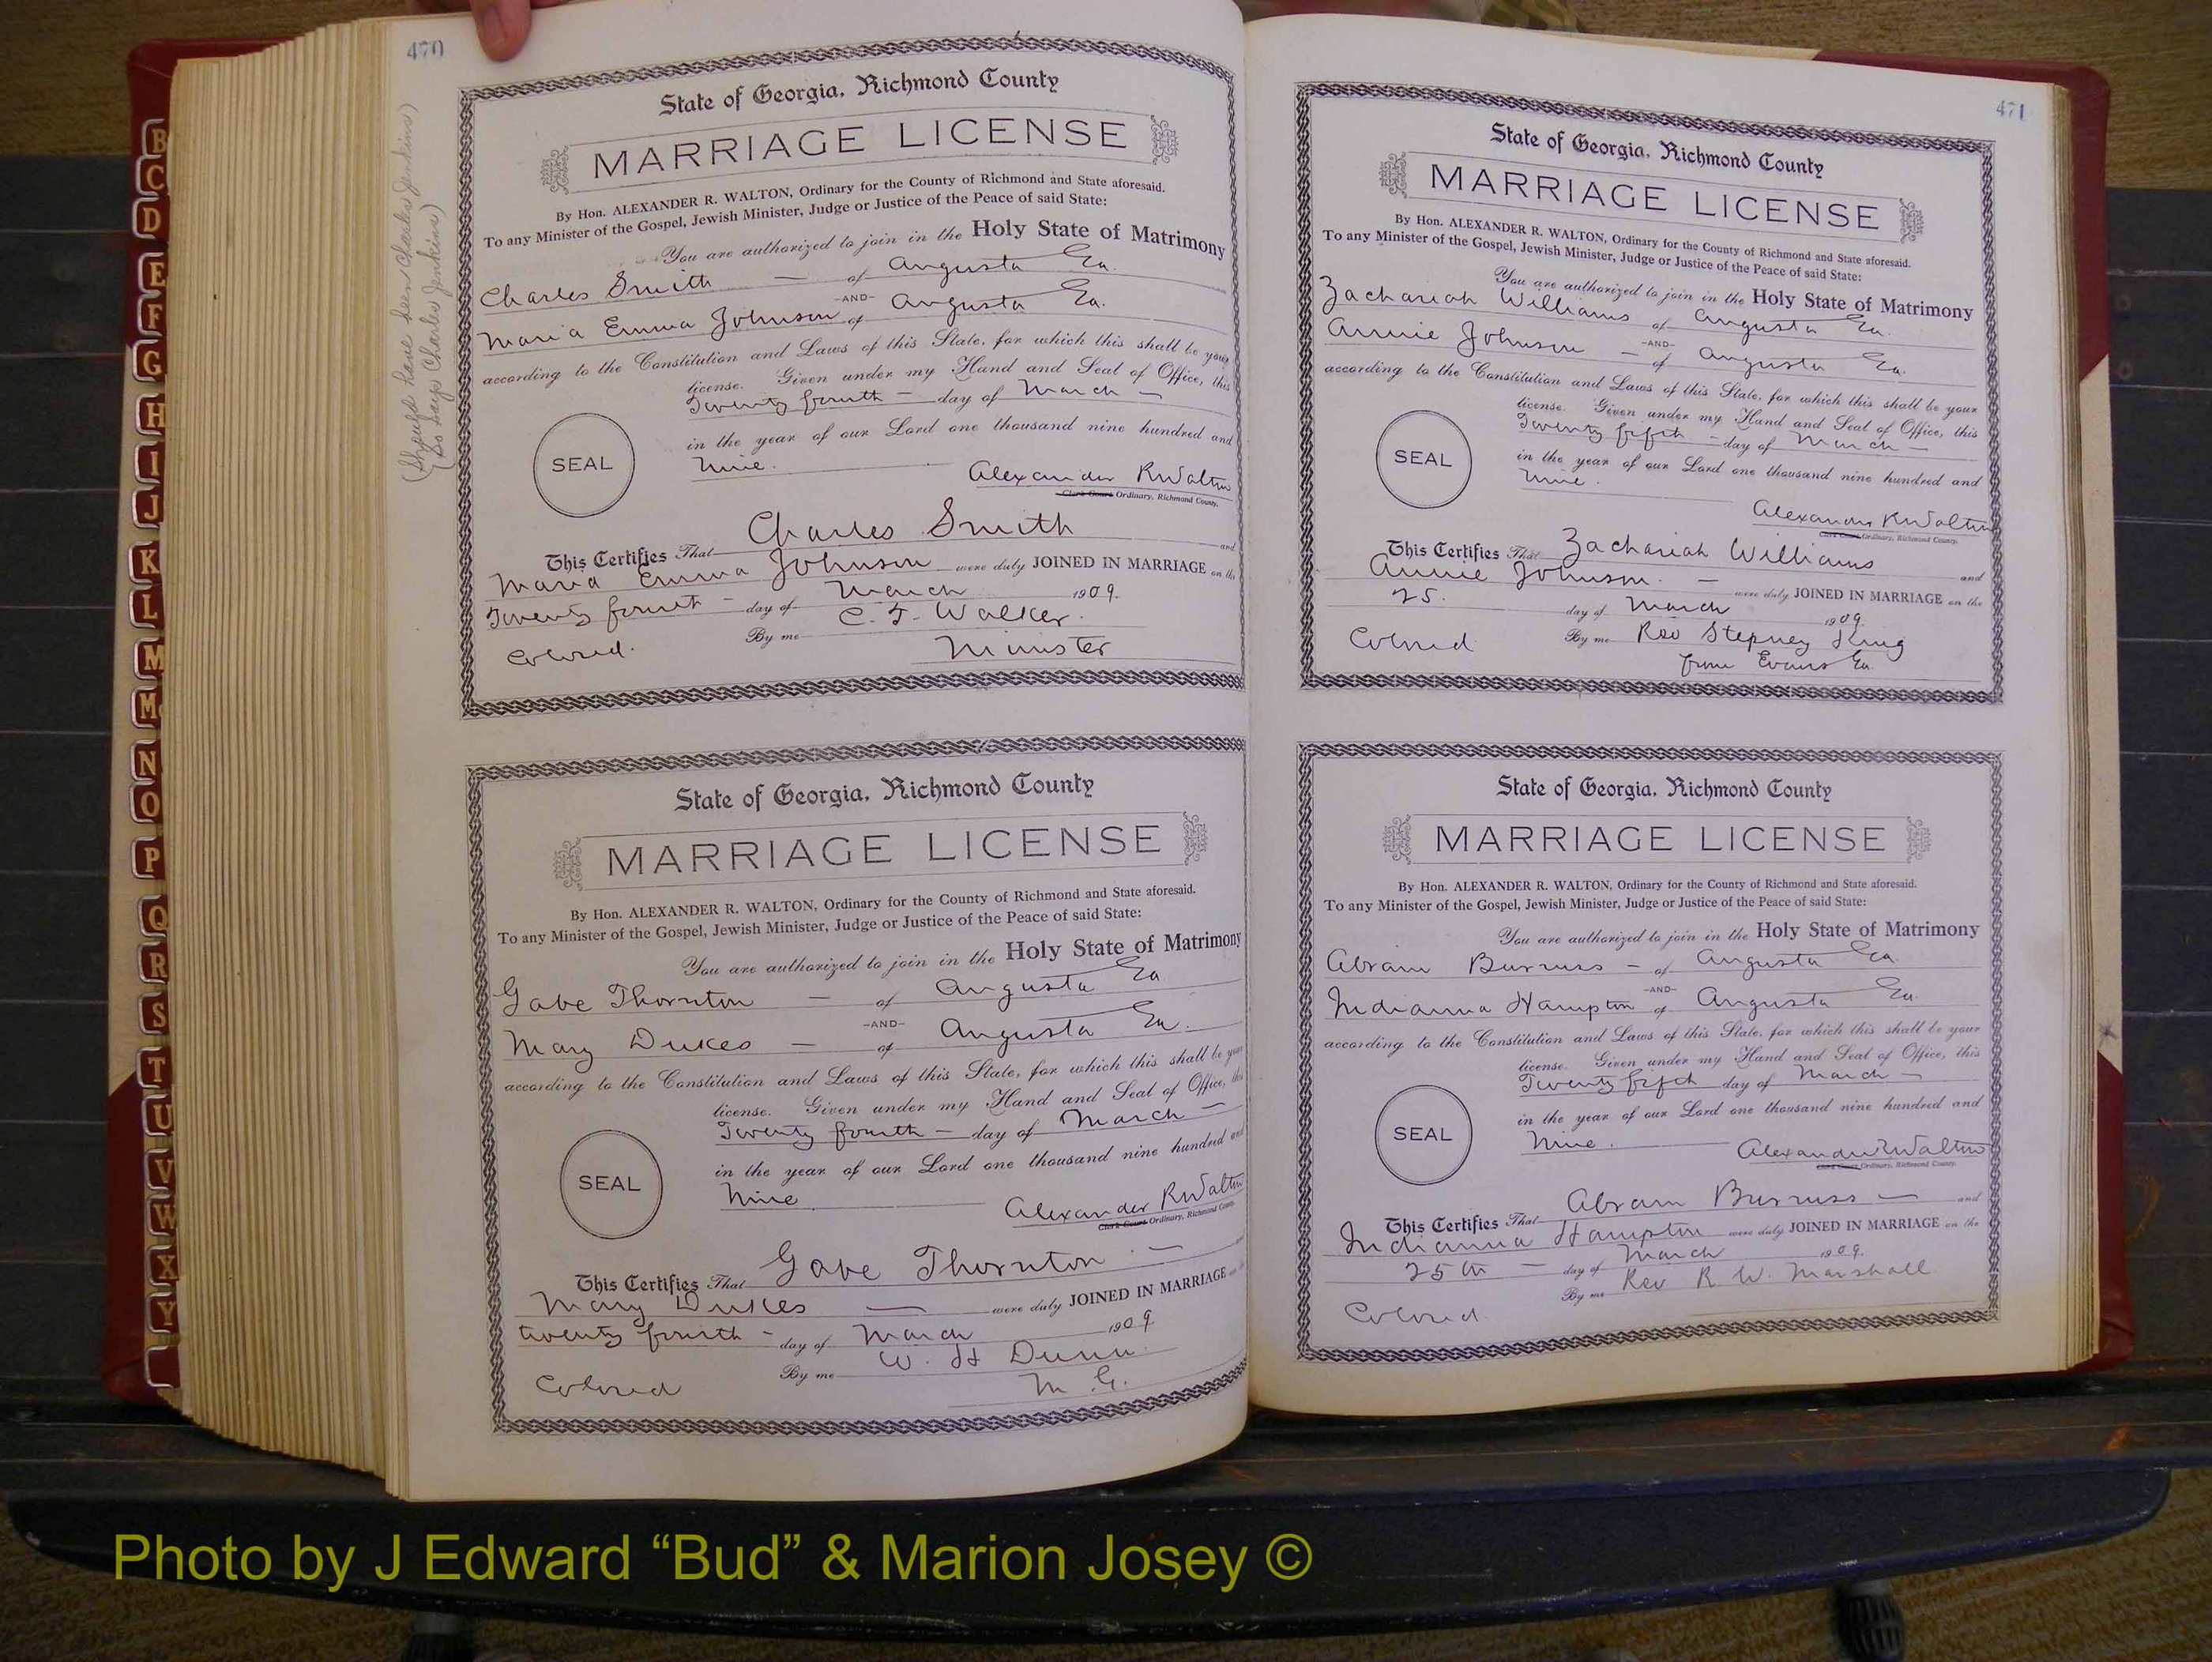 470
(Should have been Charles Jenkins)
(So says Charles Jenkins)
State of Georgia, Richmond County
MARRIAGE LICENSE
By Hon. ALEXANDER R. WALTON, Ordinary for the County of Richmond and State aforesaid.
To any Minister of the Gospel, Jewish Minister, Judge or Justice of the Peace of said State:
You are authorized to join in the Holy State of Matrimony
Charles Smith — of Augusta Ga.
-AND-
Maria Emma Johnson of Augusta Ga.
according to the Constitution and Laws of this State, for which this shall be your
license. Given under my Hand and Seal of Office, this
Twenty fourth — day of March —
in the year of our Lord one thousand nine hundred and
SEAL
Nine.
Alexander R Walton
Clerk Court Ordinary, Richmond County.
This Certifies That Charles Smith and
Maria Emma Johnson were duly JOINED IN MARRIAGE on the
Twenty fourth — day of March 1909.
By me C. T. Walker.
Colored. Minister
State of Georgia, Richmond County
MARRIAGE LICENSE
By Hon. ALEXANDER R. WALTON, Ordinary for the County of Richmond and State aforesaid.
To any Minister of the Gospel, Jewish Minister, Judge or Justice of the Peace of said State:
You are authorized to join in the Holy State of Matrimony
Gabe Thornton — of Augusta Ga
-AND-
Mary Dukes — of Augusta Ga.
according to the Constitution and Laws of this State, for which this shall be your
license. Given under my Hand and Seal of Office, this
Twenty fourth — day of March —
in the year of our Lord one thousand nine hundred and
SEAL
Nine
Alexander R Walton
Clerk Court Ordinary, Richmond County.
This Certifies That Gabe Thornton — and
Mary Dukes — were duly JOINED IN MARRIAGE on the
twenty fourth — day of March 1909.
By me W. H Dunn
Colored M. G.
471
State of Georgia, Richmond County
MARRIAGE LICENSE
By Hon. ALEXANDER R. WALTON, Ordinary for the County of Richmond and State aforesaid.
To any Minister of the Gospel, Jewish Minister, Judge or Justice of the Peace of said State:
You are authorized to join in the Holy State of Matrimony
Zachariah Williams of Augusta Ga.
-AND-
Annie Johnson — of Augusta Ga.
according to the Constitution and Laws of this State, for which this shall be your
license. Given under my Hand and Seal of Office, this
Twenty fifth — day of March —
in the year of our Lord one thousand nine hundred and
SEAL
Nine.
Alexander R Walton
Clerk Court Ordinary, Richmond County.
This Certifies That Zachariah Williams and
Annie Johnson. — were duly JOINED IN MARRIAGE on the
25. day of March 1909.
By me Rev Stepney King
Colored from Evans Ga.
State of Georgia, Richmond County
MARRIAGE LICENSE
By Hon. ALEXANDER R. WALTON, Ordinary for the County of Richmond and State aforesaid.
To any Minister of the Gospel, Jewish Minister, Judge or Justice of the Peace of said State:
You are authorized to join in the Holy State of Matrimony
Abram Burruss — of Augusta Ga.
-AND-
Indianna Hampton of Augusta Ga.
according to the Constitution and Laws of this State, for which this shall be your
license. Given under my Hand and Seal of Office, this
Twenty fifth day of March —
in the year of our Lord one thousand nine hundred and
SEAL
Nine.
Alexander R Walton
Clerk Court Ordinary, Richmond County.
This Certifies That Abram Burruss — and
Indianna Hampton were duly JOINED IN MARRIAGE on the
25th — day of March 1909.
By me Rev R. W. Marshall
Colored.
B
C
D
E
F
G
H
I
J
K
L
M
Mc
N
O
P
Q
R
S
T
U
V
W
X
Y
Photo by J Edward “Bud” & Marion Josey ©